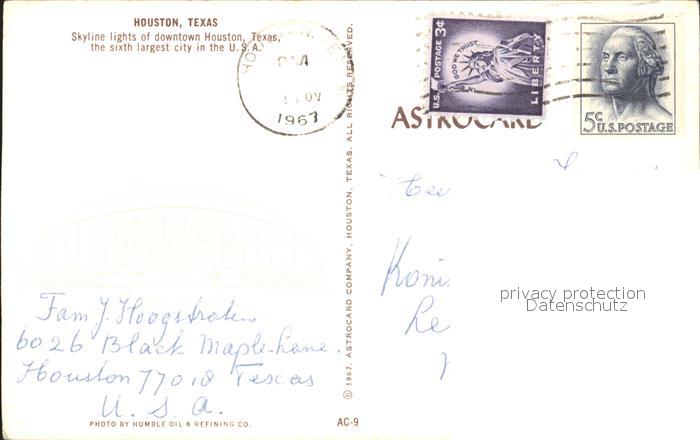 HOUSTON, TEXAS
Skyline lights of downtown Houston, Texas,
the sixth largest city in the U.S.A.
PM
NOV
1967
U.S. POSTAGE 3¢
IN GOD WE TRUST
LIBERTY
5¢ U.S. POSTAGE
ASTROCARD
© 1967, ASTROCARD COMPANY, HOUSTON, TEXAS. ALL RIGHTS RESERVED.
privacy protection
Datenschutz
Fam J. Hoogstraten
6026 Black Maple-Lane.
Houston 77018 Texas
U. S. A.
PHOTO BY HUMBLE OIL & REFINING CO.
AC-9